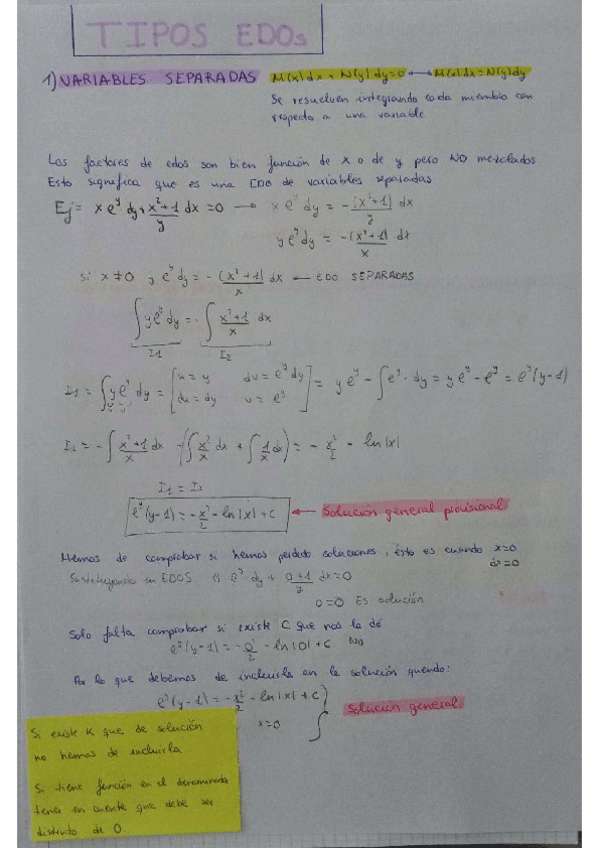 TIPOS EDOs
1) VARIABLES SEPARADAS M(x)dx + N(y)dy=0 ⟷ M(x)dx = N(y)dy
Se resuelven integrando cada miembro con
respecto a una variable
Los factores de edos son bien función de x o de y pero NO mezclados
Esto significa que es una EDO de variables separadas
Ej= x e^y dy + (x²+1)/y dx = 0 → x e^y dy = -(x²+1)/y dx
y e^y dy = -(x²+1)/x dx
Si x≠0 y e^y dy = -(x²+1)/x dx ← EDO SEPARADAS
∫ y e^y dy = -∫ (x²+1)/x dx
I1 I2
I1 = ∫ y e^y dy = [u = y dv = e^y dy du = dy v = e^y] = y e^y - ∫ e^y · dy = y e^y - e^y = e^y (y-1)
I2 = -∫ (x²+1)/x dx -(∫ x²/x dx + ∫ 1/x dx) = - x²/2 - ln|x|
I1 = I2
e^y (y-1) = - x²/2 - ln|x| + C ← Solución general provisional
Hemos de comprobar si hemos perdido soluciones, ésto es cuando x=0
dx=0
Sustituyendo en EDOS 0 e^y · dy + (0+1)/y dx = 0
0=0 Es solución
Solo falta comprobar si existe C que nos la dé
e^y (y-1) = - 0/2 - ln|0| + C No
Por lo que debemos de incluirla en la solución quendo:
e^y (y-1) = - x²/2 - ln|x| + C
x=0
Solución general
Si existe K que de solución
no hemos de incluirla
Si tiene función en el denominado
tener en cuenta que debe ser
distinto de 0.